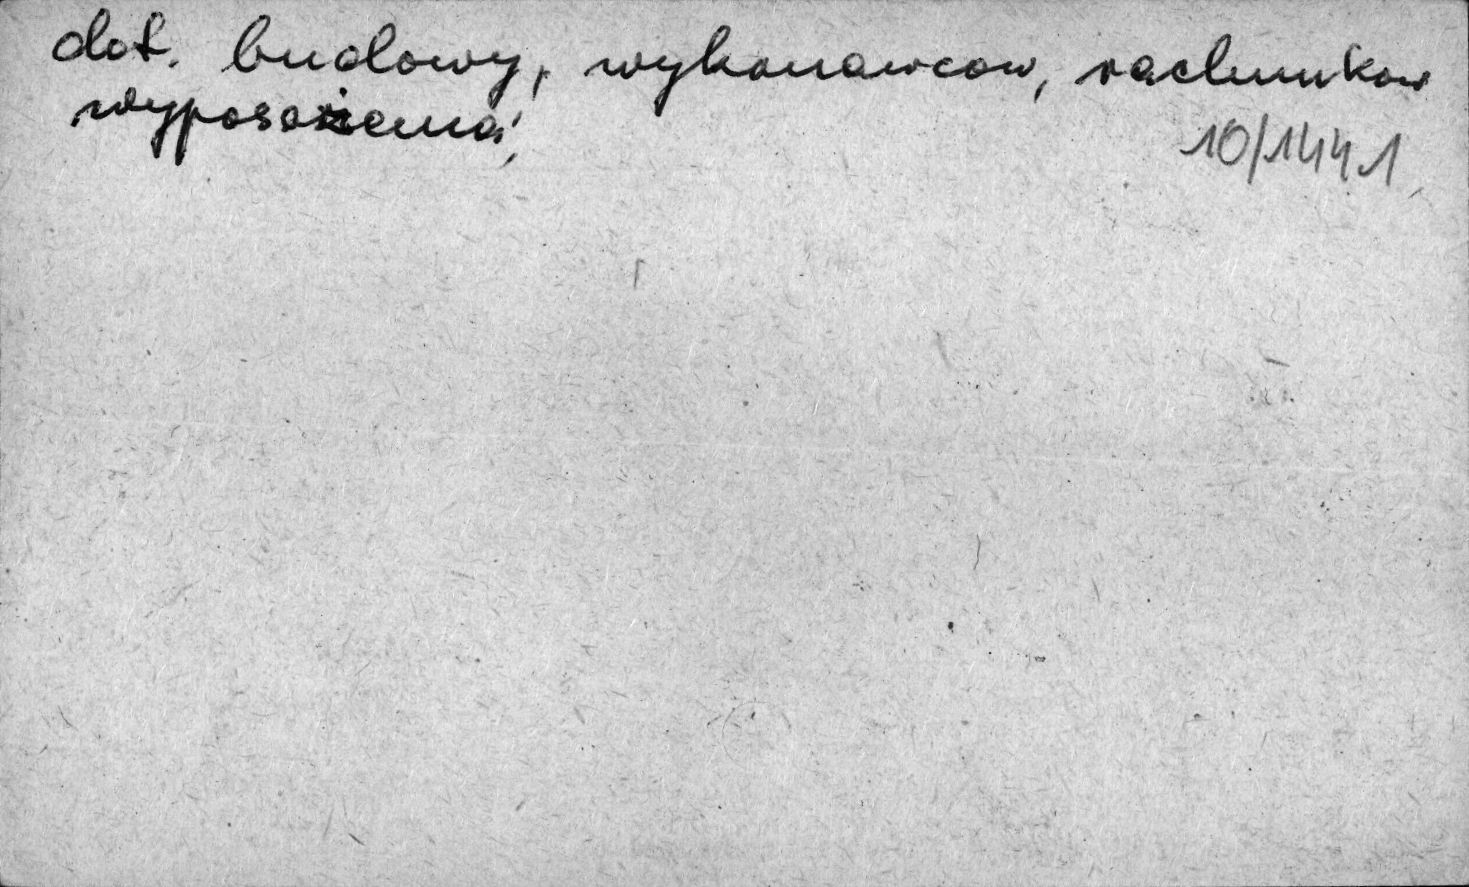 dot. budowy, wykonawcow, rachunkow
wyposażenia,
10/1441